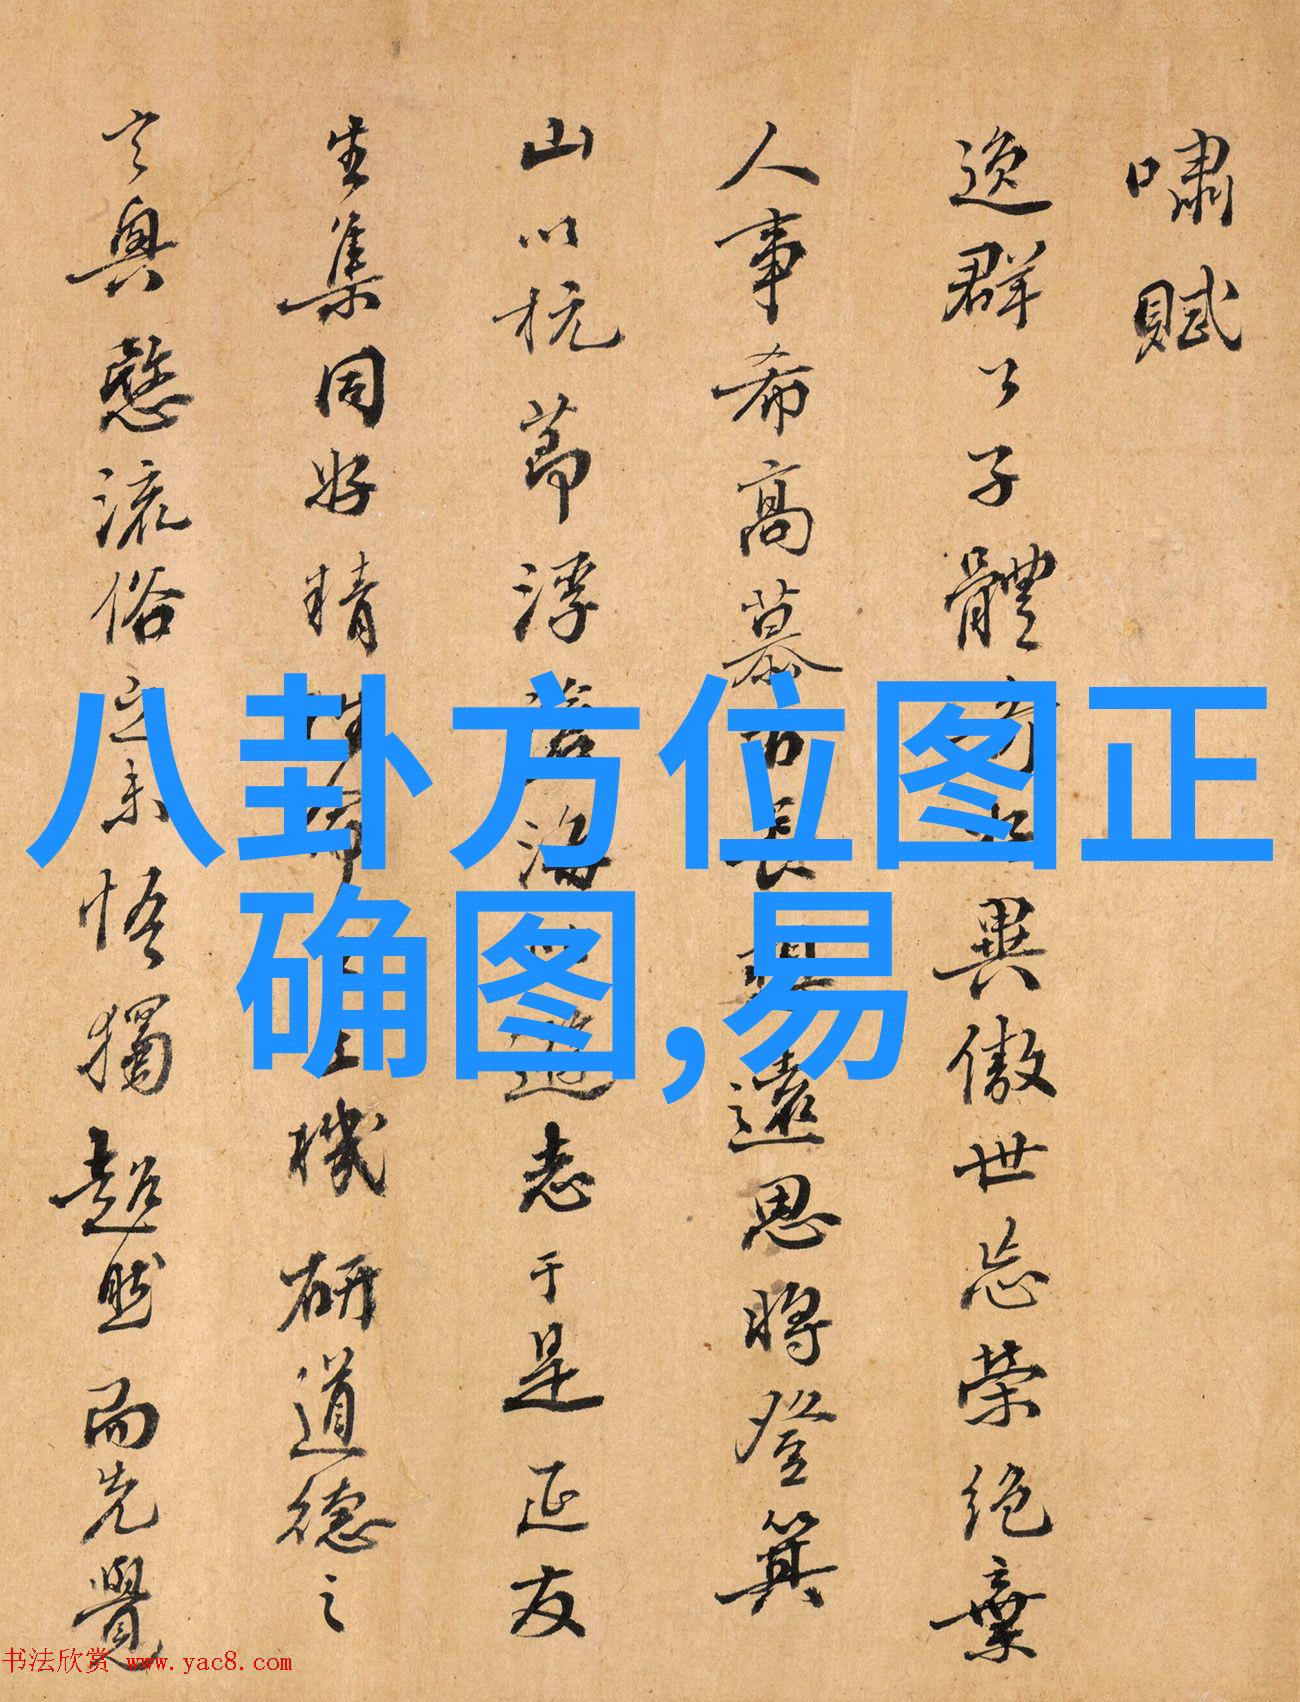 嘯賦
逸群公子體奇異傲世忘榮絕棄
人事希高慕古長遠思將登箕
山以杭節浮滄海以遊志于是延友
生集同好精性命機研道德之
玄奥愍流俗之未悟獨超然而先覺
八卦方位图正
确图,易
书法欣赏 www.yac8.com